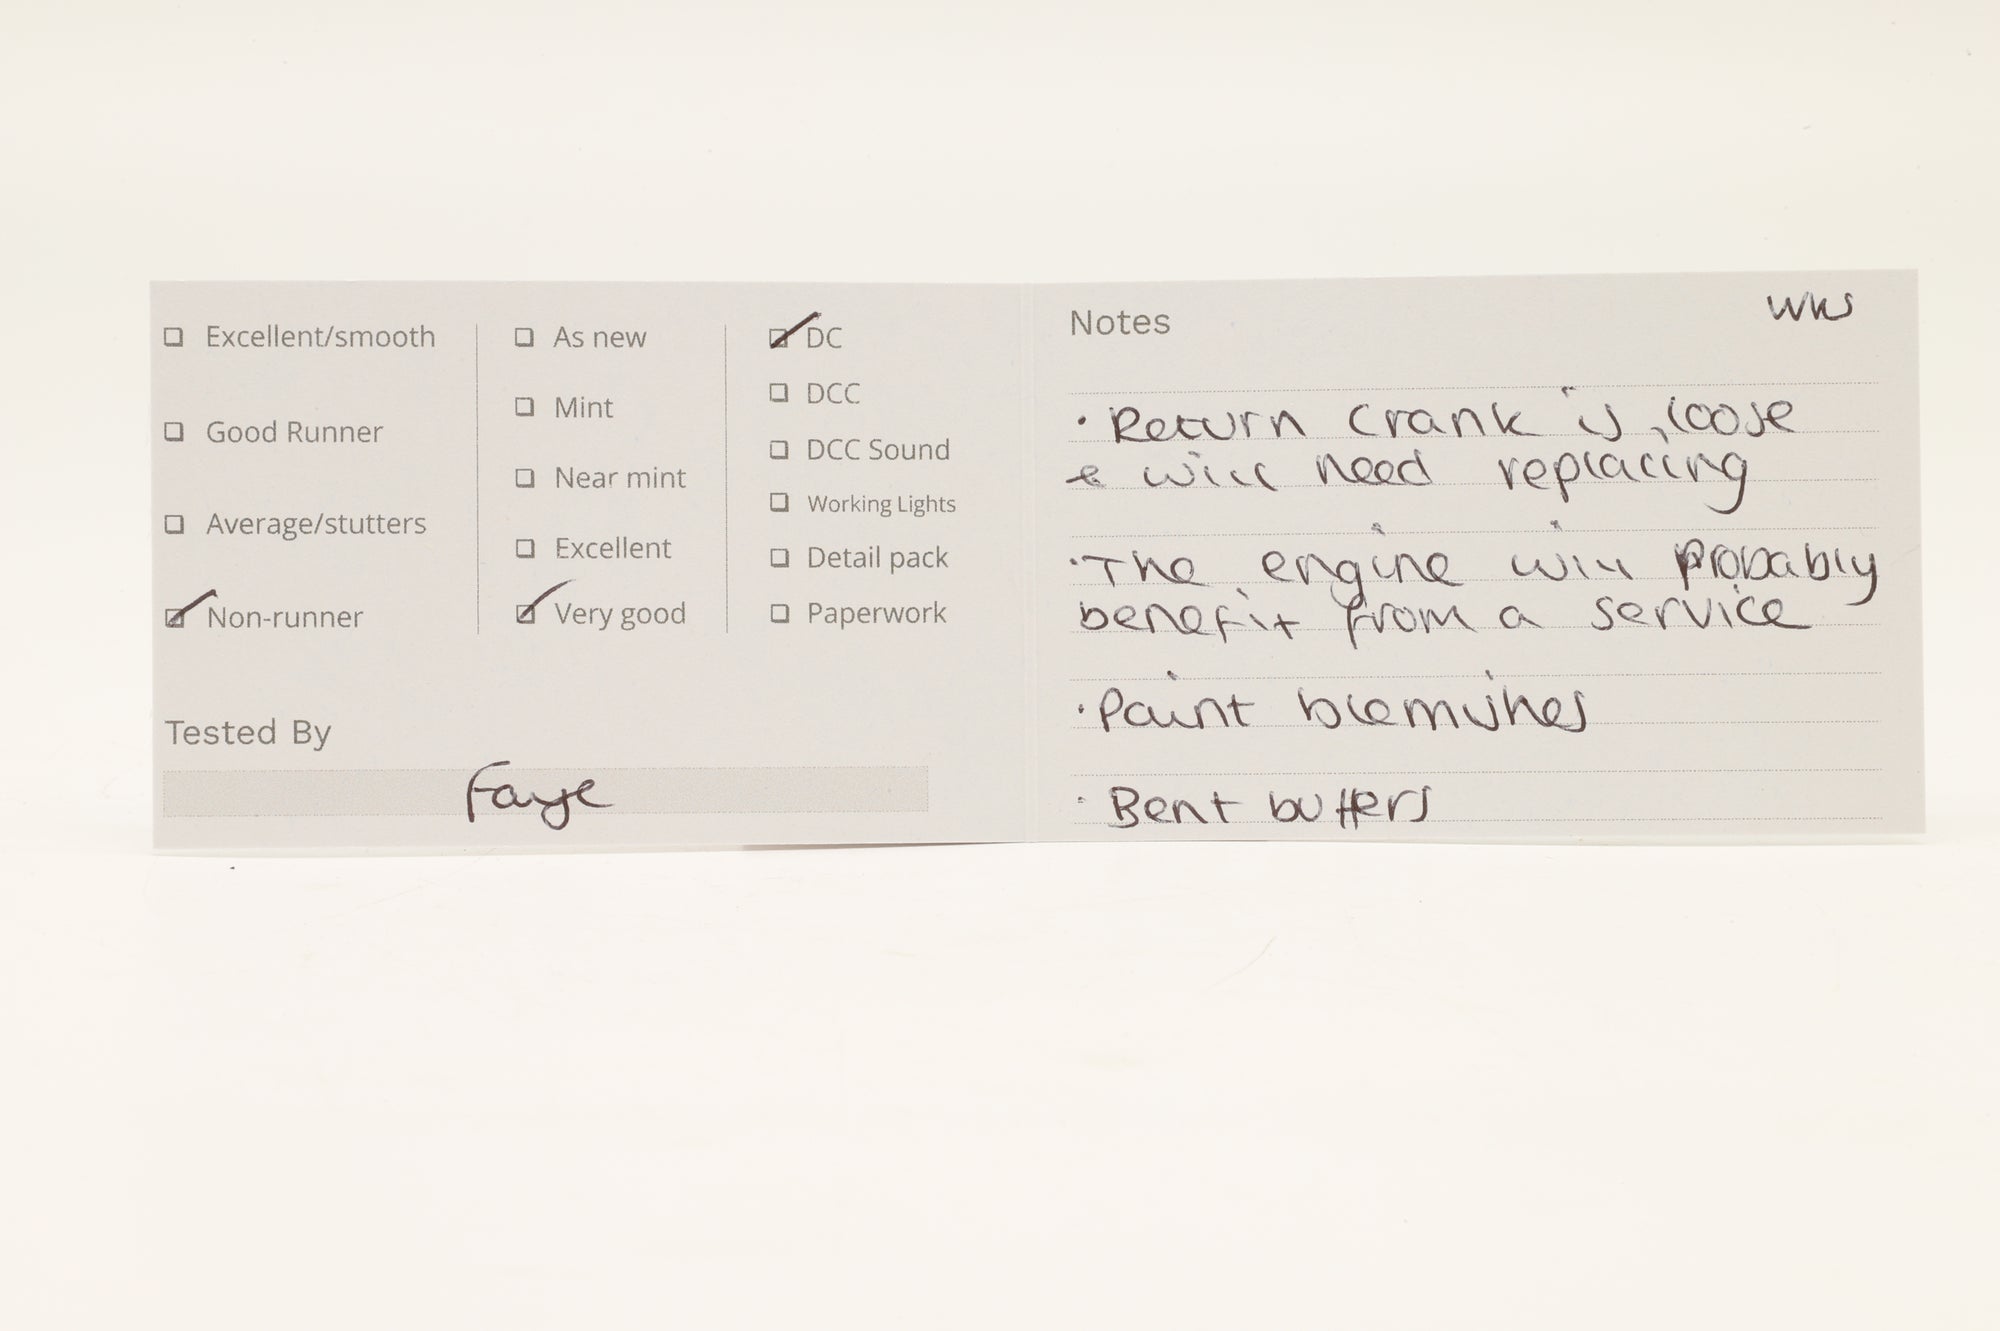 ☐ Excellent/smooth
☐ Good Runner
☐ Average/stutters
☑ Non-runner
☐ As new
☐ Mint
☐ Near mint
☐ Excellent
☑ Very good
☑ DC
☐ DCC
☐ DCC Sound
☐ Working Lights
☐ Detail pack
☐ Paperwork
Tested By
Faye
Notes
WKS
· Return crank is loose
& will need replacing
· The engine will probably
benefit from a service
· Paint blemishes
· Bent buffers